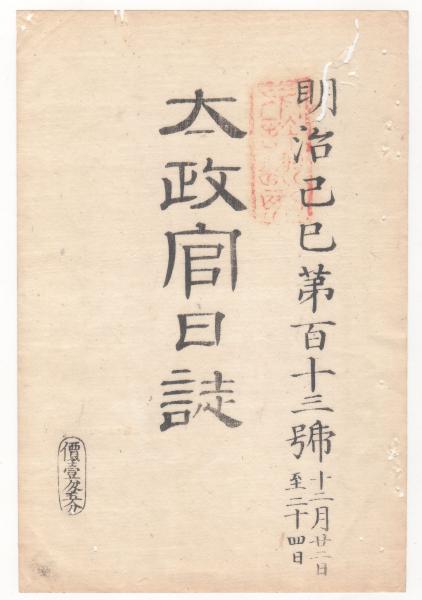 明治己巳第百十三號
十二月廿二日
至二十四日
太政官日誌
價壹匁五分